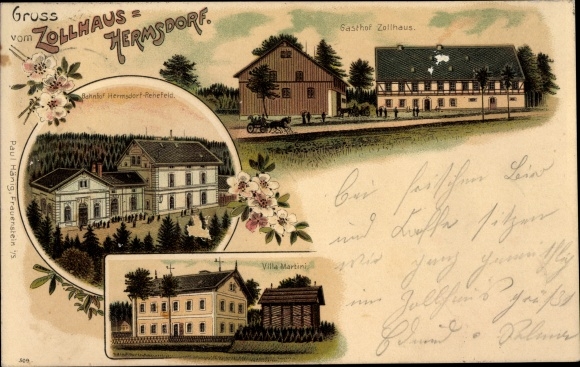 Gruss
vom ZOLLHAUS=
HERMSDORF.
Gasthof Zollhaus.
Bahnhof Hermsdorf-Rehefeld.
Paul Hänig, Frauenstein i/S.
Villa Martini
509.
Bei frischem Bier
und Kaffe sitzen
wir ganz gemüthlich
im Zollhaus grüßt
Edmund